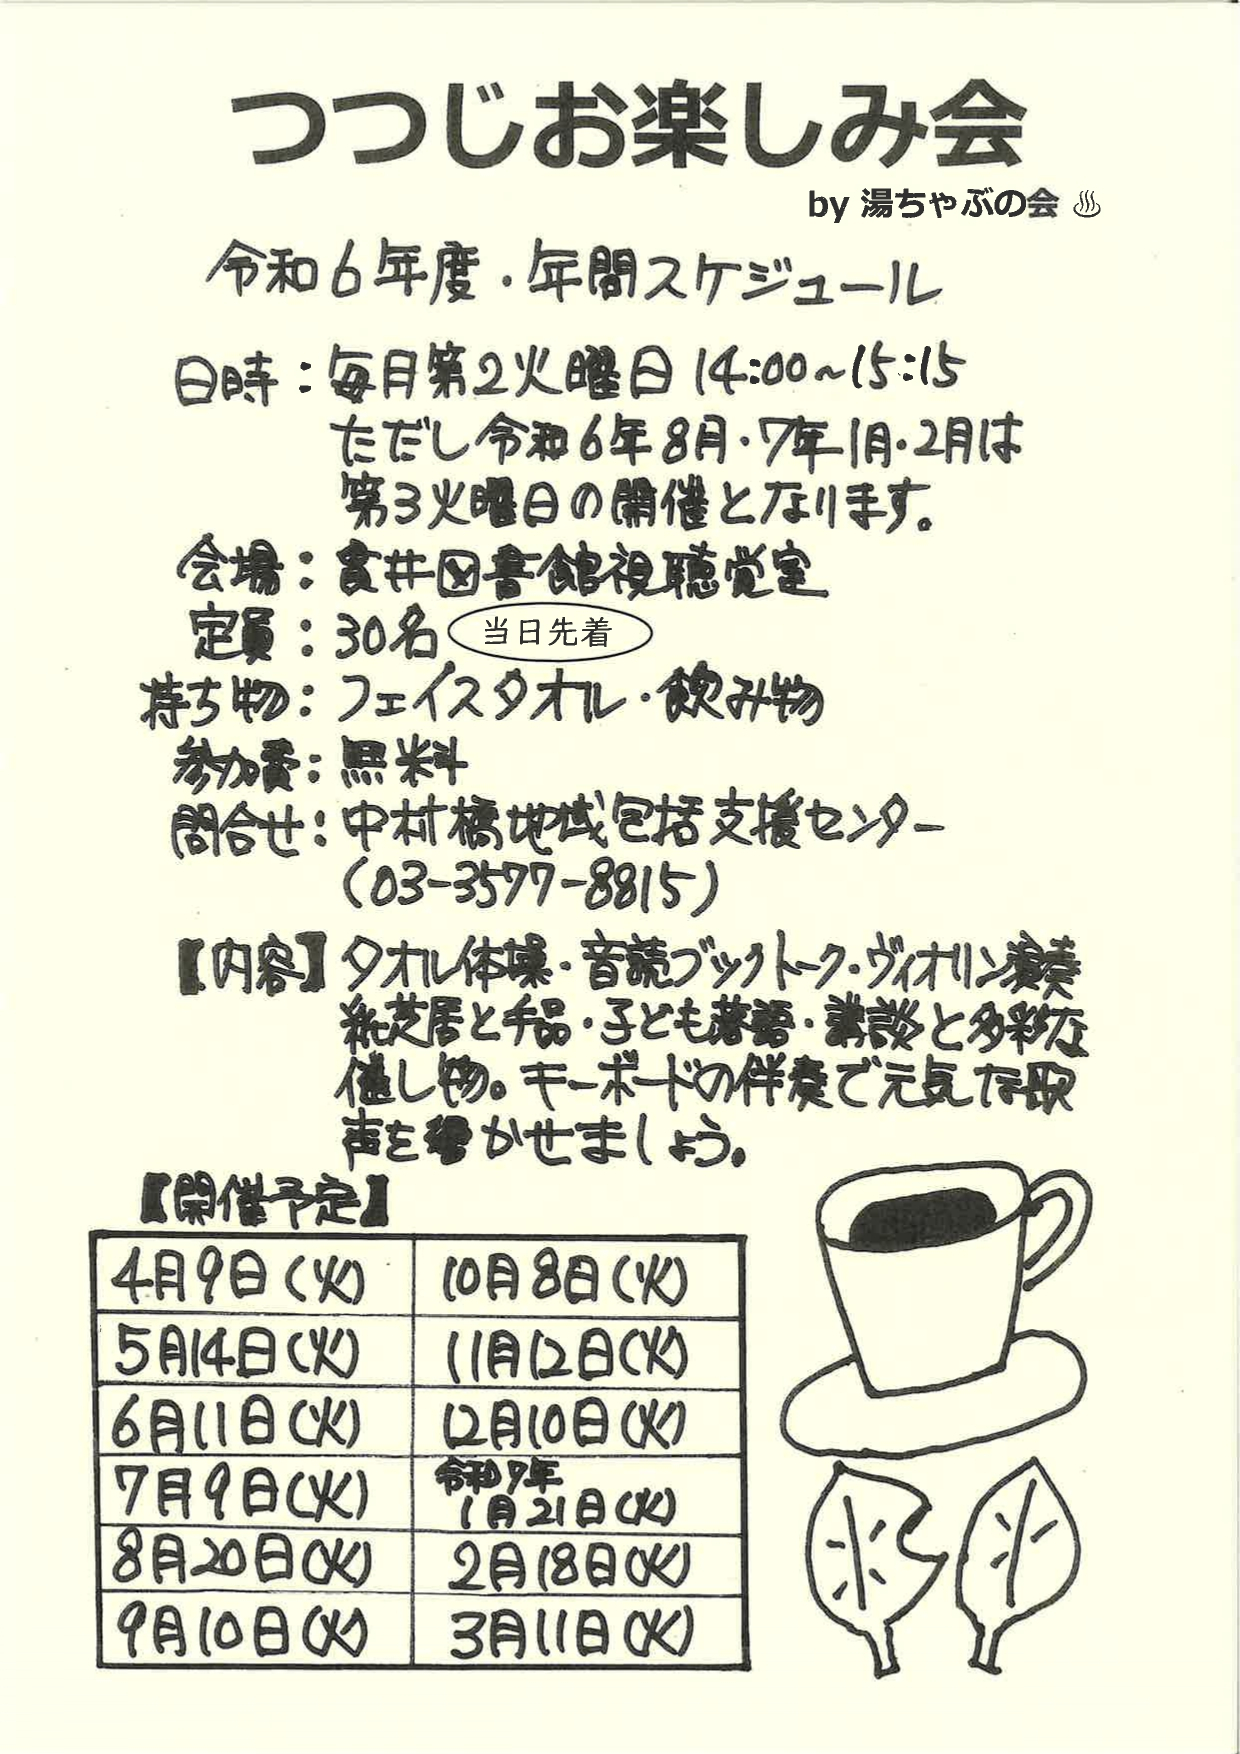 つつじお楽しみ会
by 湯ちゃぶの会 ♨
令和6年度・年間スケジュール
日時：毎月第2火曜日 14:00~15:15
ただし令和6年8月・7年1月・2月は
第3火曜日の開催となります。
会場：貫井図書館視聴覚室
定員：30名 当日先着
持ち物：フェイスタオル・飲み物
参加費：無料
問合せ：中村橋地域包括支援センター
(03-3577-8815)
【内容】タオル体操・音読ブックトーク・ヴィオリン演奏
紙芝居と手品・子ども落語・講談と多彩な
催し物。キーボードの伴奏で元気な歌
声を響かせましょう。
【開催予定】
4月9日(火) 10月8日(火)
5月14日(火) 11月12日(火)
6月11日(火) 12月10日(火)
7月9日(火) 令和7年 1月21日(火)
8月20日(火) 2月18日(火)
9月10日(火) 3月11日(火)